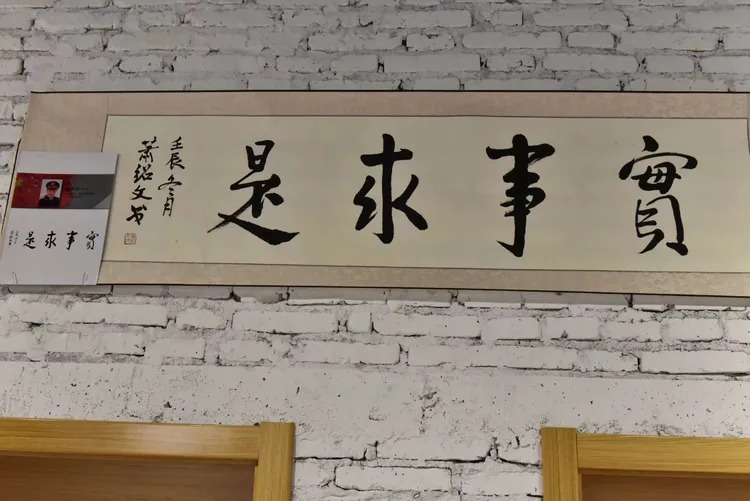 實事求是
壬辰冬月
蕭绍文书
實事求是